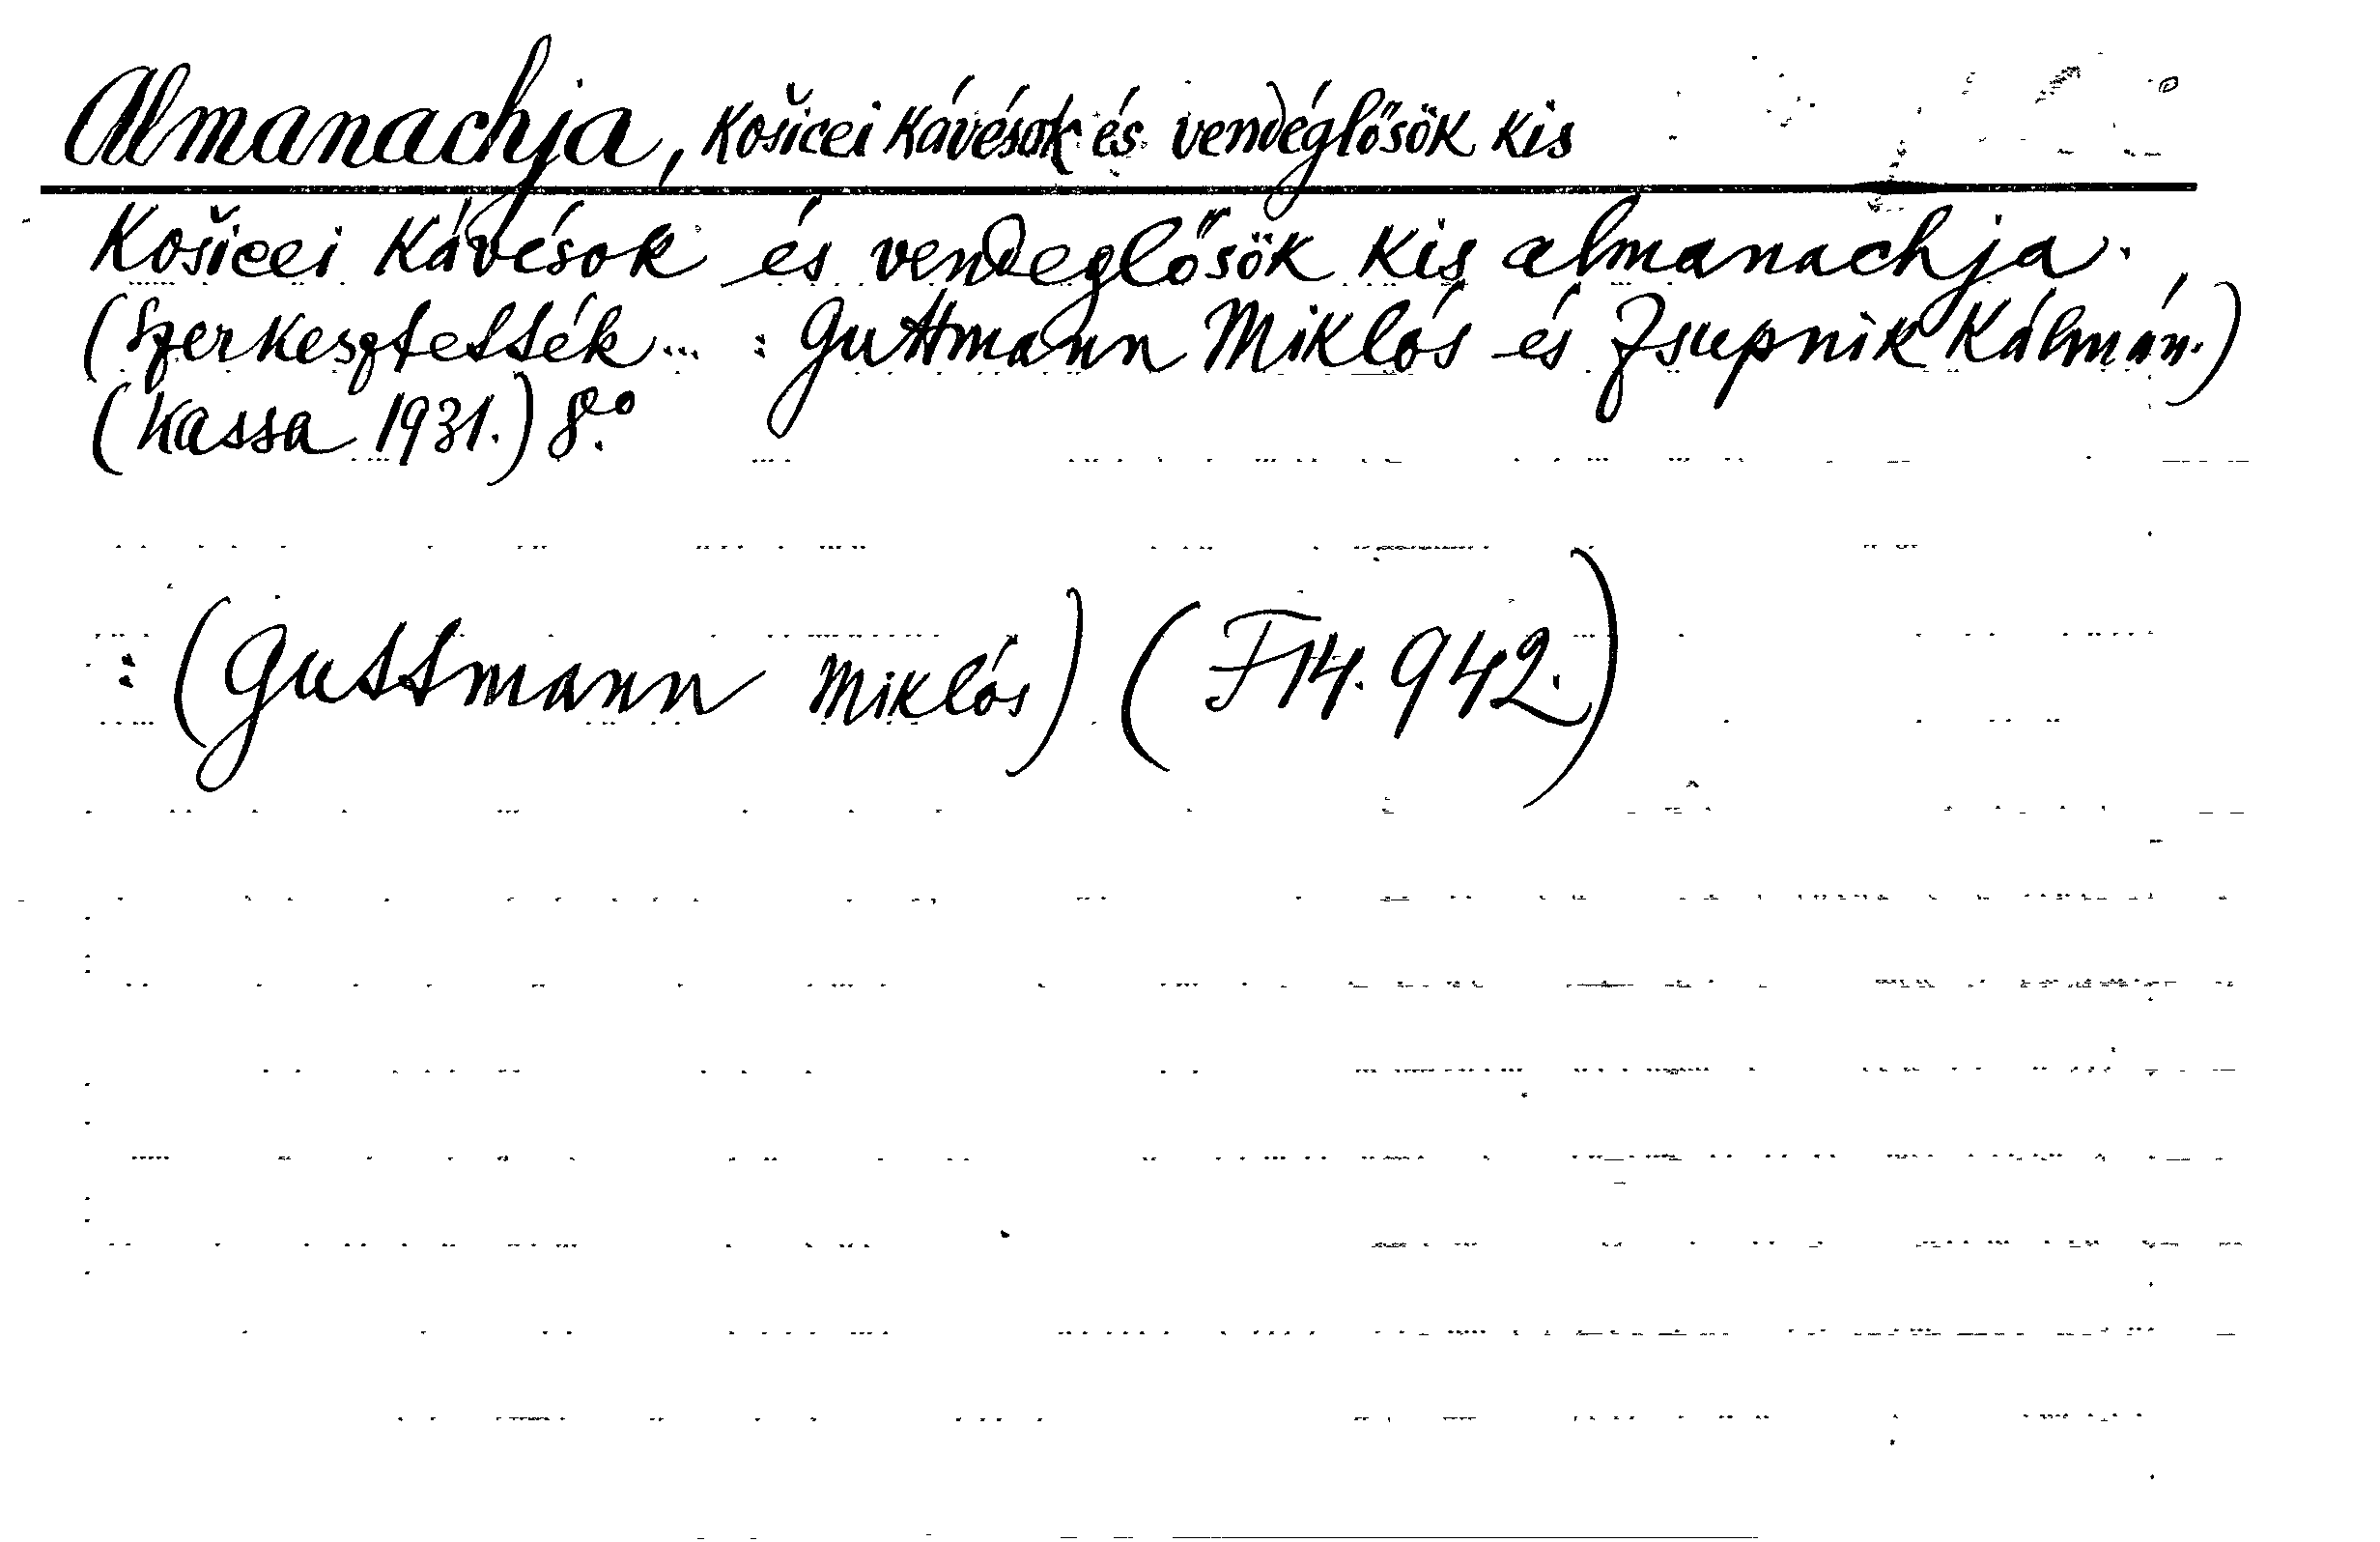 Almanachja, Košicei kávésok és vendéglősök kis
Košicei kávésok és vendeglősök kis almanachja.
(Szerkesztették... : Guttmann Miklós és Zsupnik Kálmán.)
(Kassa 1931.) 8.º
: (Guttmann Miklós) (F14.942.)